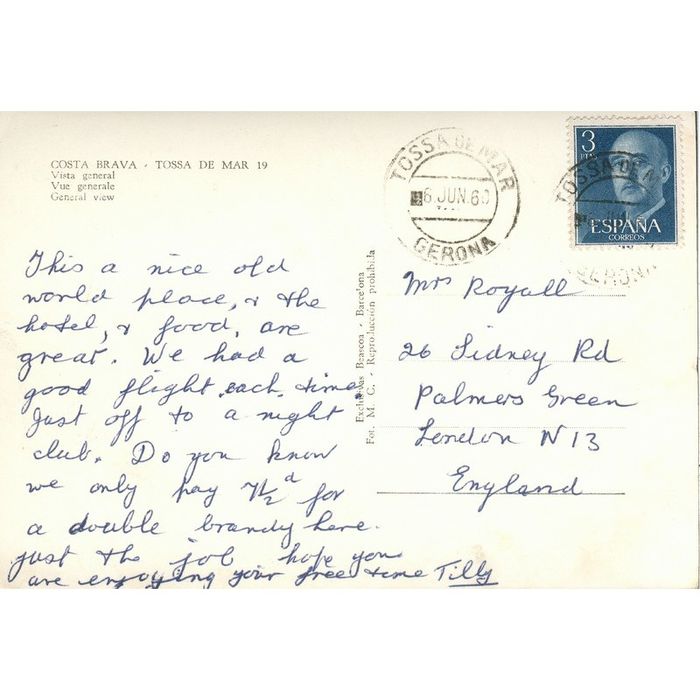 COSTA BRAVA - TOSSA DE MAR 19
Vista general
Vue generale
General view
This a nice old
world place, & the
hotel, & food, are
great. We had a
good flight each time
Just off to a night
club. Do you know
we only pay 7½d for
a double brandy here.
just the job hope you
are enjoying your free time Tilly
Exclusivas Beascoa - Barcelona
Fot. M. C. - Reproducción prohibida
TOSSA DE MAR
6 JUN. 60
GERONA
3
PTS
ESPAÑA
CORREOS
TOSSA DE M
GERONA
Mrs Royall
26 Sidney Rd
Palmers Green
London N13
England